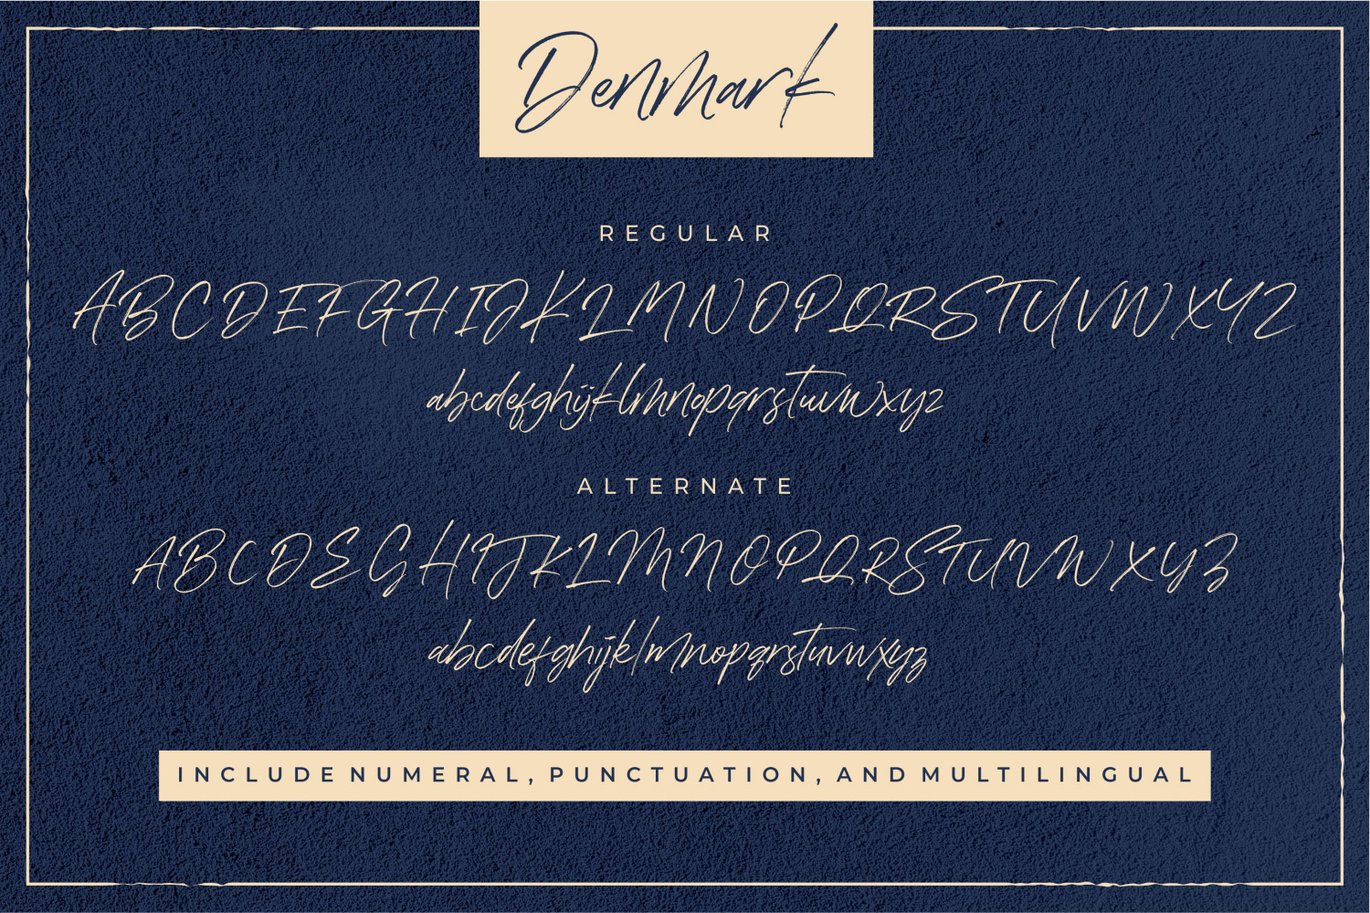 Denmark
REGULAR
ABCDEFGHIJKLMNOPQRSTUVWXYZ
abcdefghijklmnopqrstuvwxyz
ALTERNATE
ABCDEGHIJKLMNOPQRSTUVWXYZ
abcdefghijklmnopqrstuvwxyz
INCLUDE NUMERAL, PUNCTUATION, AND MULTILINGUAL